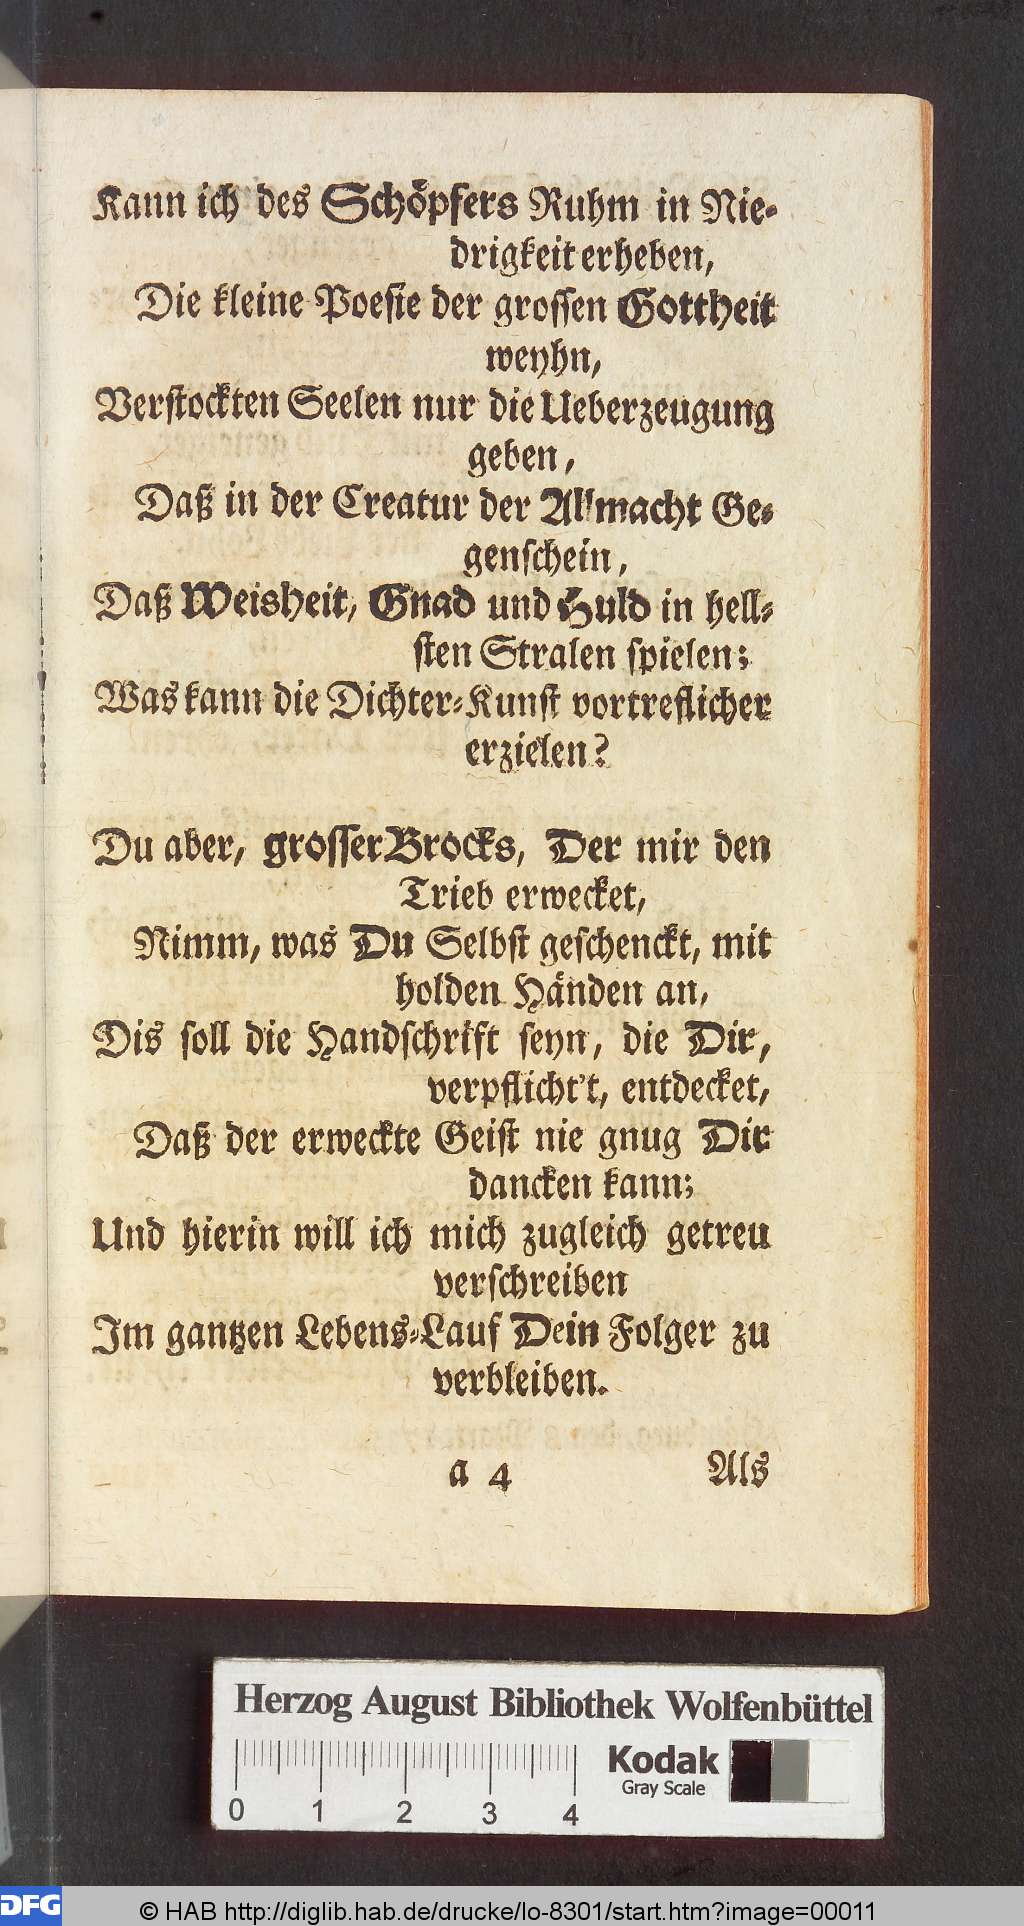 Kann ich des Schöpfers Ruhm in Nie-
drigkeit erheben,
Die kleine Poesie der grossen Gottheit
weyhn,
Verstockten Seelen nur die Ueberzeugung
geben,
Daß in der Creatur der Allmacht Ge-
genschein,
Daß Weisheit, Gnad und Huld in hell-
sten Stralen spielen;
Was kann die Dichter-Kunst vortreflicher
erzielen?
Du aber, grosser Brocks, Der mir den
Trieb erwecket,
Nimm, was Du Selbst geschenckt, mit
holden Händen an,
Dis soll die Handschrift seyn, die Dir,
verpflicht't, entdecket,
Daß der erweckte Geist nie gnug Dir
dancken kann;
Und hierin will ich mich zugleich getreu
verschreiben
Im gantzen Lebens-Lauf Dein Folger zu
verbleiben.
a 4 Als
Herzog August Bibliothek Wolfenbüttel
Kodak
Gray Scale
0 1 2 3 4
DFG
© HAB http://diglib.hab.de/drucke/lo-8301/start.htm?image=00011